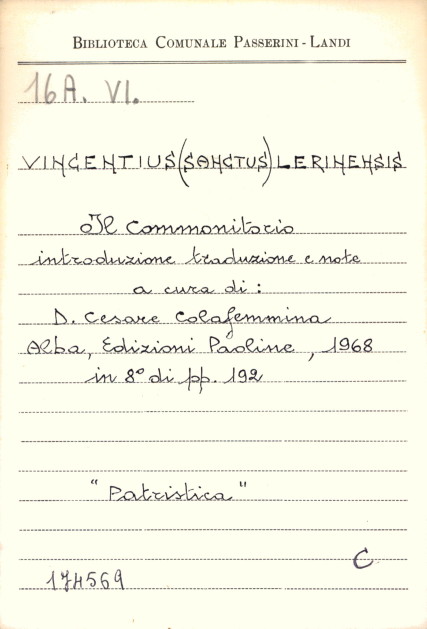 BIBLIOTECA COMUNALE PASSERINI - LANDI
16A. VI.
VINCENTIUS (SANCTUS) LERINENSIS
Il Commonitorio
introduzione traduzione e note
a cura di :
D. Cesare Colafemmina
Alba, Edizioni Paoline, 1968
in 8° di pp. 192
"Patristica"
C
174569